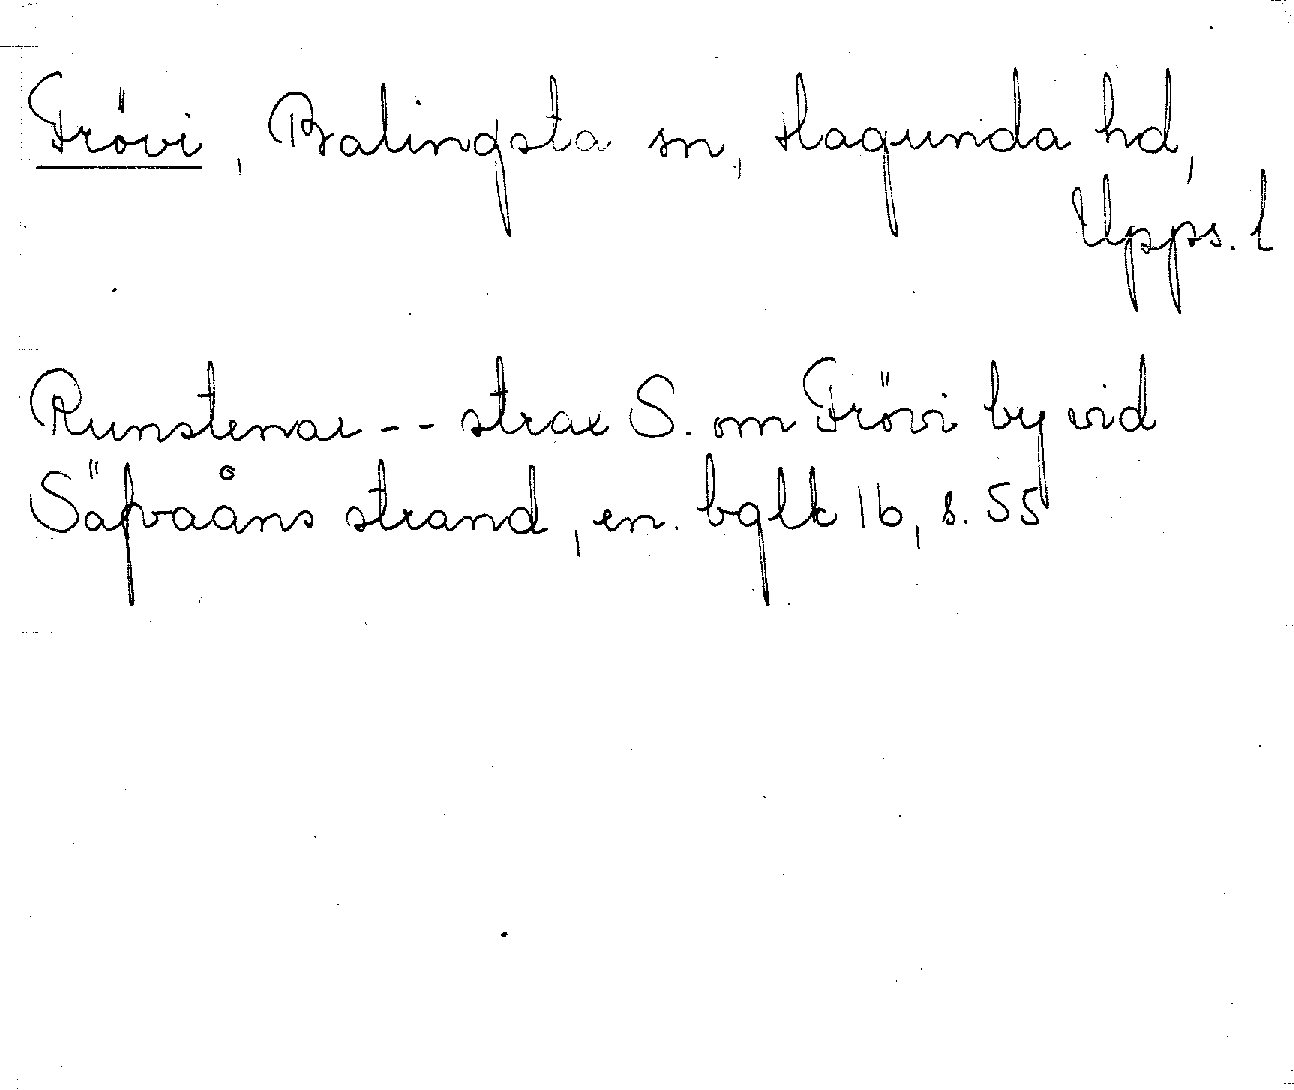 Frövi, Balingsta sn, Hagunda hd,
Upps. l
Runstenar -- strax S. om Frövi by vid
Säfvaåns strand, en. bglk 16, s. 55